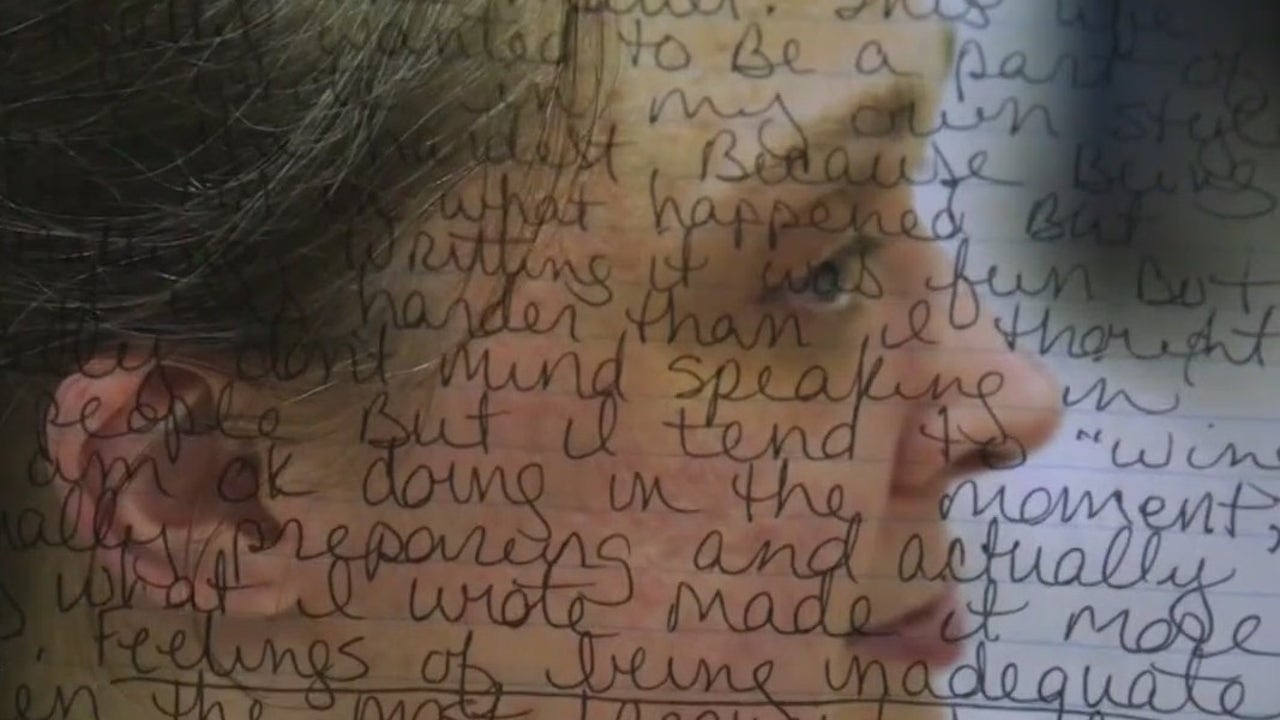 This
wanted to Be a part of
in my own style
hardest, Because Being
what happened But
Writting it was fun But
harder than I thought
don't mind speaking in
people But I tend to "win
am ok doing in the moment,
preparing and actually
what I wrote made it more
. Feelings of being inadequate
the most